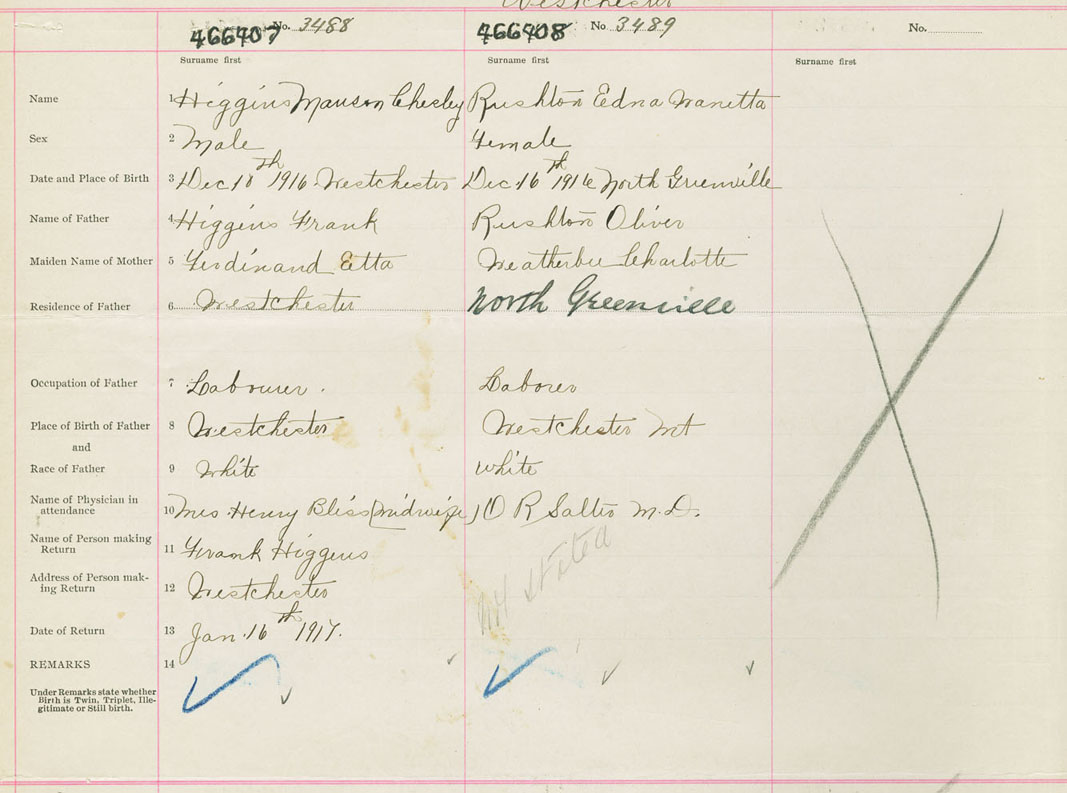 Westchester
466407 No. 3488 466408 No 3489 No.
Surname first Surname first Surname first
Name 1 Higgins Manson Chesley Rushton Edna Wanetta
Sex 2 Male Female
Date and Place of Birth 3 Dec 18th 1916 Westchester Dec 16th 1916 North Greenville
Name of Father 4 Higgins Frank Rushton Oliver
Maiden Name of Mother 5 Ferdinand Etta Weatherbee Charlotte
Residence of Father 6 Westchester North Greenville
Occupation of Father 7 Labourer. Laborer
Place of Birth of Father 8 Westchester Westchester Mt
and
Race of Father 9 White white
Name of Physician in
attendance 10 Mrs Henry Bliss (midwife) O R Salter M.D.
Name of Person making
Return 11 Frank Higgens
Address of Person mak-
ing Return 12 Westchester Not stated
Date of Return 13 Jan. 16th 1917.
REMARKS 14
Under Remarks state whether
Birth is Twin, Triplet, Ille-
gitimate or Still birth.